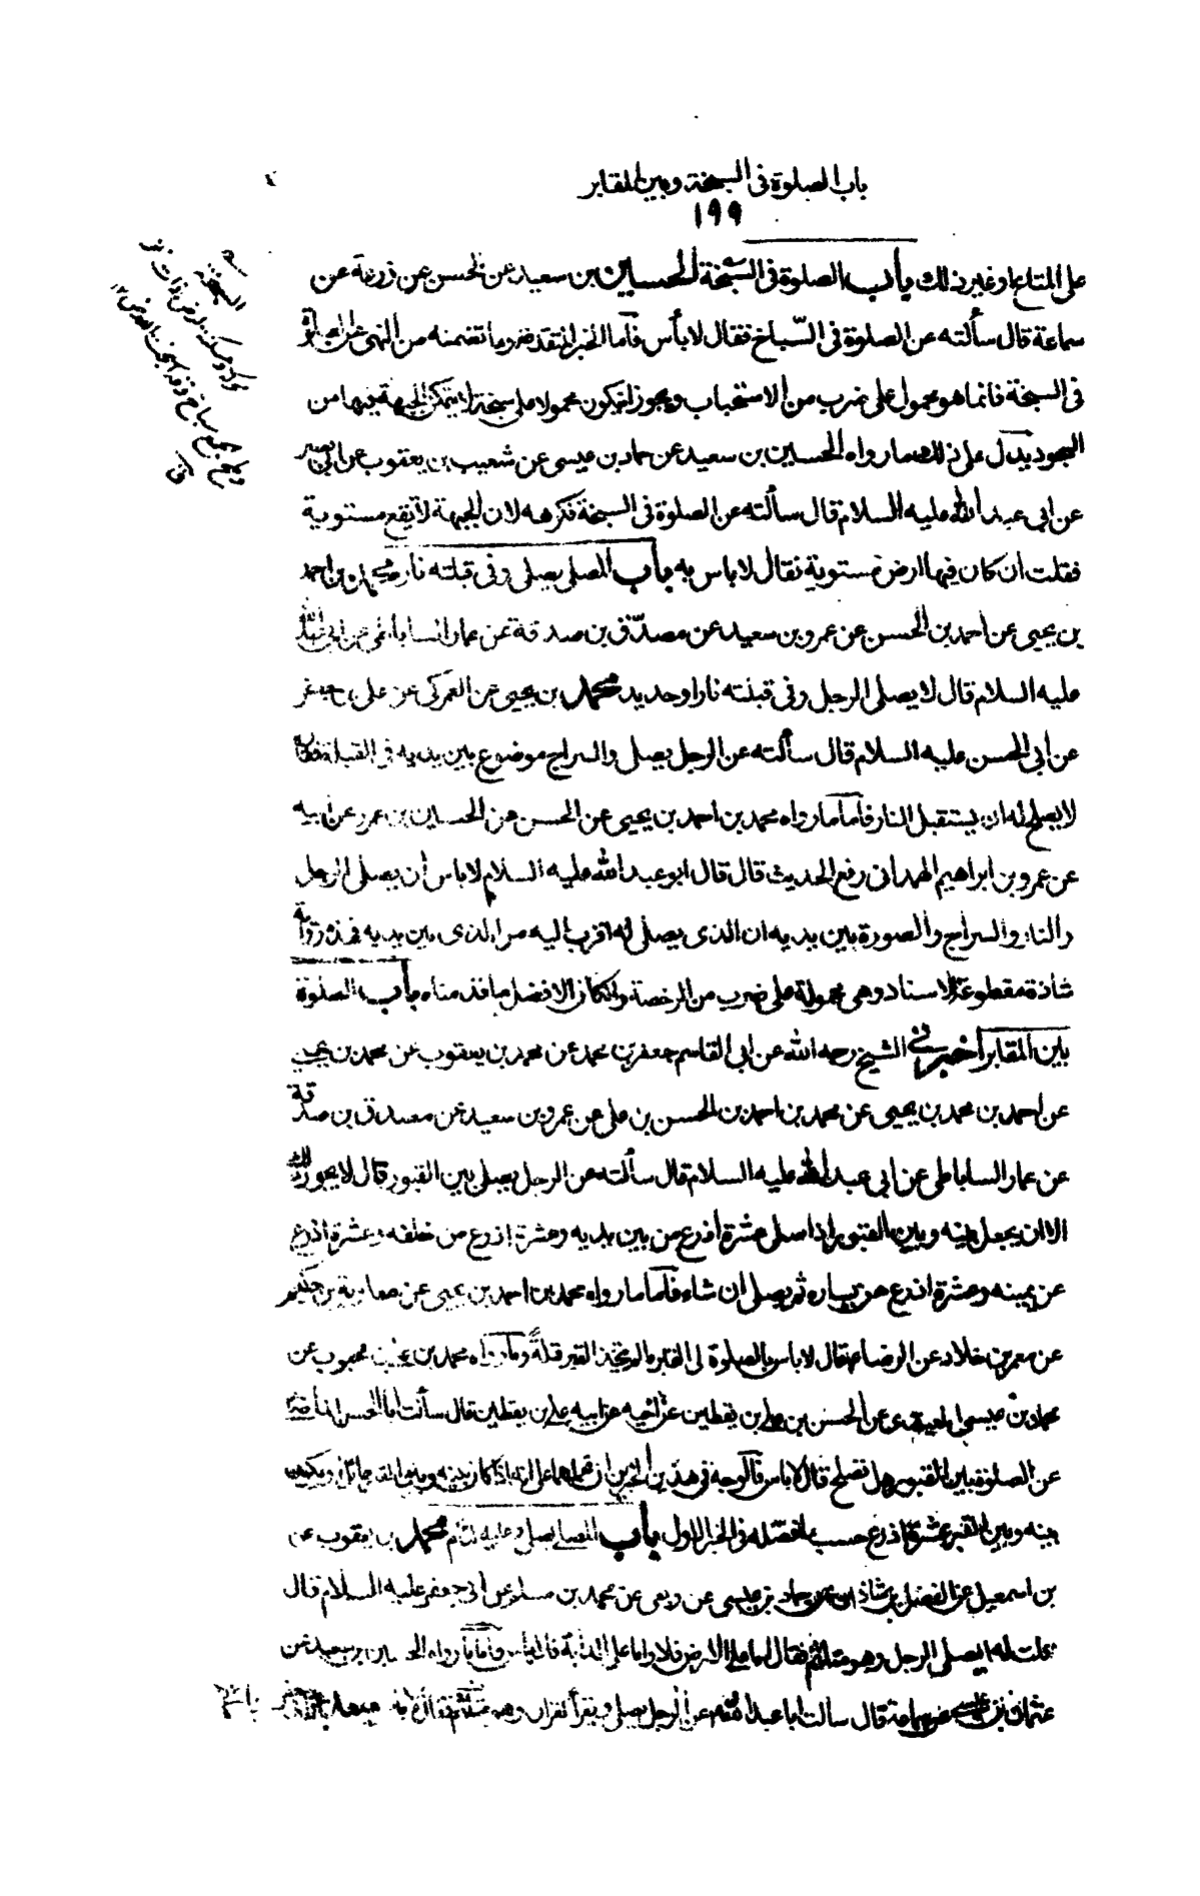 باب الصلوة فى السبخة وبين المقابر
١٩٩
على المتاع وغير ذلك باب الصلوة فى السبخة الحسين بن سعيد عن الحسن عن زرعة عن
سماعة قال سألته عن الصلوة فى السّباخ فقال لا بأس فاما الخبر المتقدم وما تضمنه من النهى عن الصلوة
فى السبخة فانما هو محمول على ضرب من الاستحباب ويجوز ان يكون محمولا على سبخة لا يتمكن الجبهة فيها من
السجود يدل على ذلك ما رواه الحسين بن سعيد عن حماد بن عيسى عن شعيب بن يعقوب عن ابى بصير
عن ابى عبد الله عليه السلام قال سألته عن الصلوة فى السبخة فكرهه لان الجبهة لا يقع مستوية
فقلت ان كان فيها ارض مستوية فقال لا باس به باب المصلى يصلى وفى قبلته نار محمد بن احمد
بن يحيى عن احمد بن الحسن عن عمرو بن سعيد عن مصدّق بن صدقة عن عمار الساباطى عن ابى عبد الله
عليه السلام قال لا يصلى الرجل وفى قبلته نار او حديد محمد بن يحيى عن العمركى عن على بن جعفر
عن أبى الحسن عليه السلام قال سألته عن الرجل يصلى والسراج موضوع بين يديه فى القبلة فقال
لا يصلح له ان يستقبل النار فأما ما رواه محمد بن احمد بن يحيى عن الحسن عن الحسين بن عمرو عن ابيه
عن عمرو بن ابراهيم الهمدانى رفع الحديث قال قال ابو عبد الله عليه السلام لا باس أن يصلى الرجل
والنار والسراج والصورة بين يديه ان الذى يصلى له اقرب اليه من الذى بين يديه فهذه رواية
شاذة مقطوعة الاسناد وهى محمولة على ضرب من الرخصة وان كان الافضل ما قدمناه باب الصلوة
بين المقابر أخبرنى الشيخ رحمه الله عن ابى القاسم جعفر بن محمد عن محمد بن يعقوب عن محمد بن يحيى
عن احمد بن محمد بن يحيى عن محمد بن احمد بن الحسن بن على عن عمرو بن سعيد عن مصدق بن صدقة
عن عمار الساباطى عن ابى عبد الله عليه السلام قال سألته عن الرجل يصلى بين القبور قال لا يجوز ذلك
الا ان يجعل بينه وبين القبور اذا صلى عشرة اذرع من بين يديه وعشرة اذرع من خلفه وعشرة اذرع
عن يمينه وعشرة اذرع عن يساره ثم يصلى ان شاء فأما ما رواه محمد بن احمد بن يحيى عن معاوية بن حكيم
عن معمر بن خلاد عن الرضا ع قال لا باس بالصلوة الى القبر ما لم يتخذ القبر قبلةً وما رواه محمد بن على بن محبوب عن
محمد بن عيسى العبيدى عن الحسن بن على بن يقطين عن اخيه عن ابيه على بن يقطين قال سألت ابا الحسن الماضى
عن الصلوة بين القبور هل تصلح قال لا باس فالوجه فى هذين الخبرين ان نحملهما على انه اذا كان بينه وبين القبر حائل او يكون
بينه وبين القبر عشرة اذرع حسب ما فصّله فى الخبر الاول باب المصلى يصلى وعليه لثام محمد بن يعقوب عن
بن اسمعيل عن الفضل بن شاذان عن حماد بن عيسى عن ربعى عن محمد بن مسلم عن ابى جعفر عليه السلام قال
قلت له ايصلى الرجل وهو متلثم فقال اما على الارض فلا واما على الدابة فلا بأس فأما ما رواه الحسين بن سعيد عن
عثمان بن عيسى عن سماعة قال سالت ابا عبد الله ع عن الرجل يصلى ويقرأ القران وهو متلثم فقال لا باس